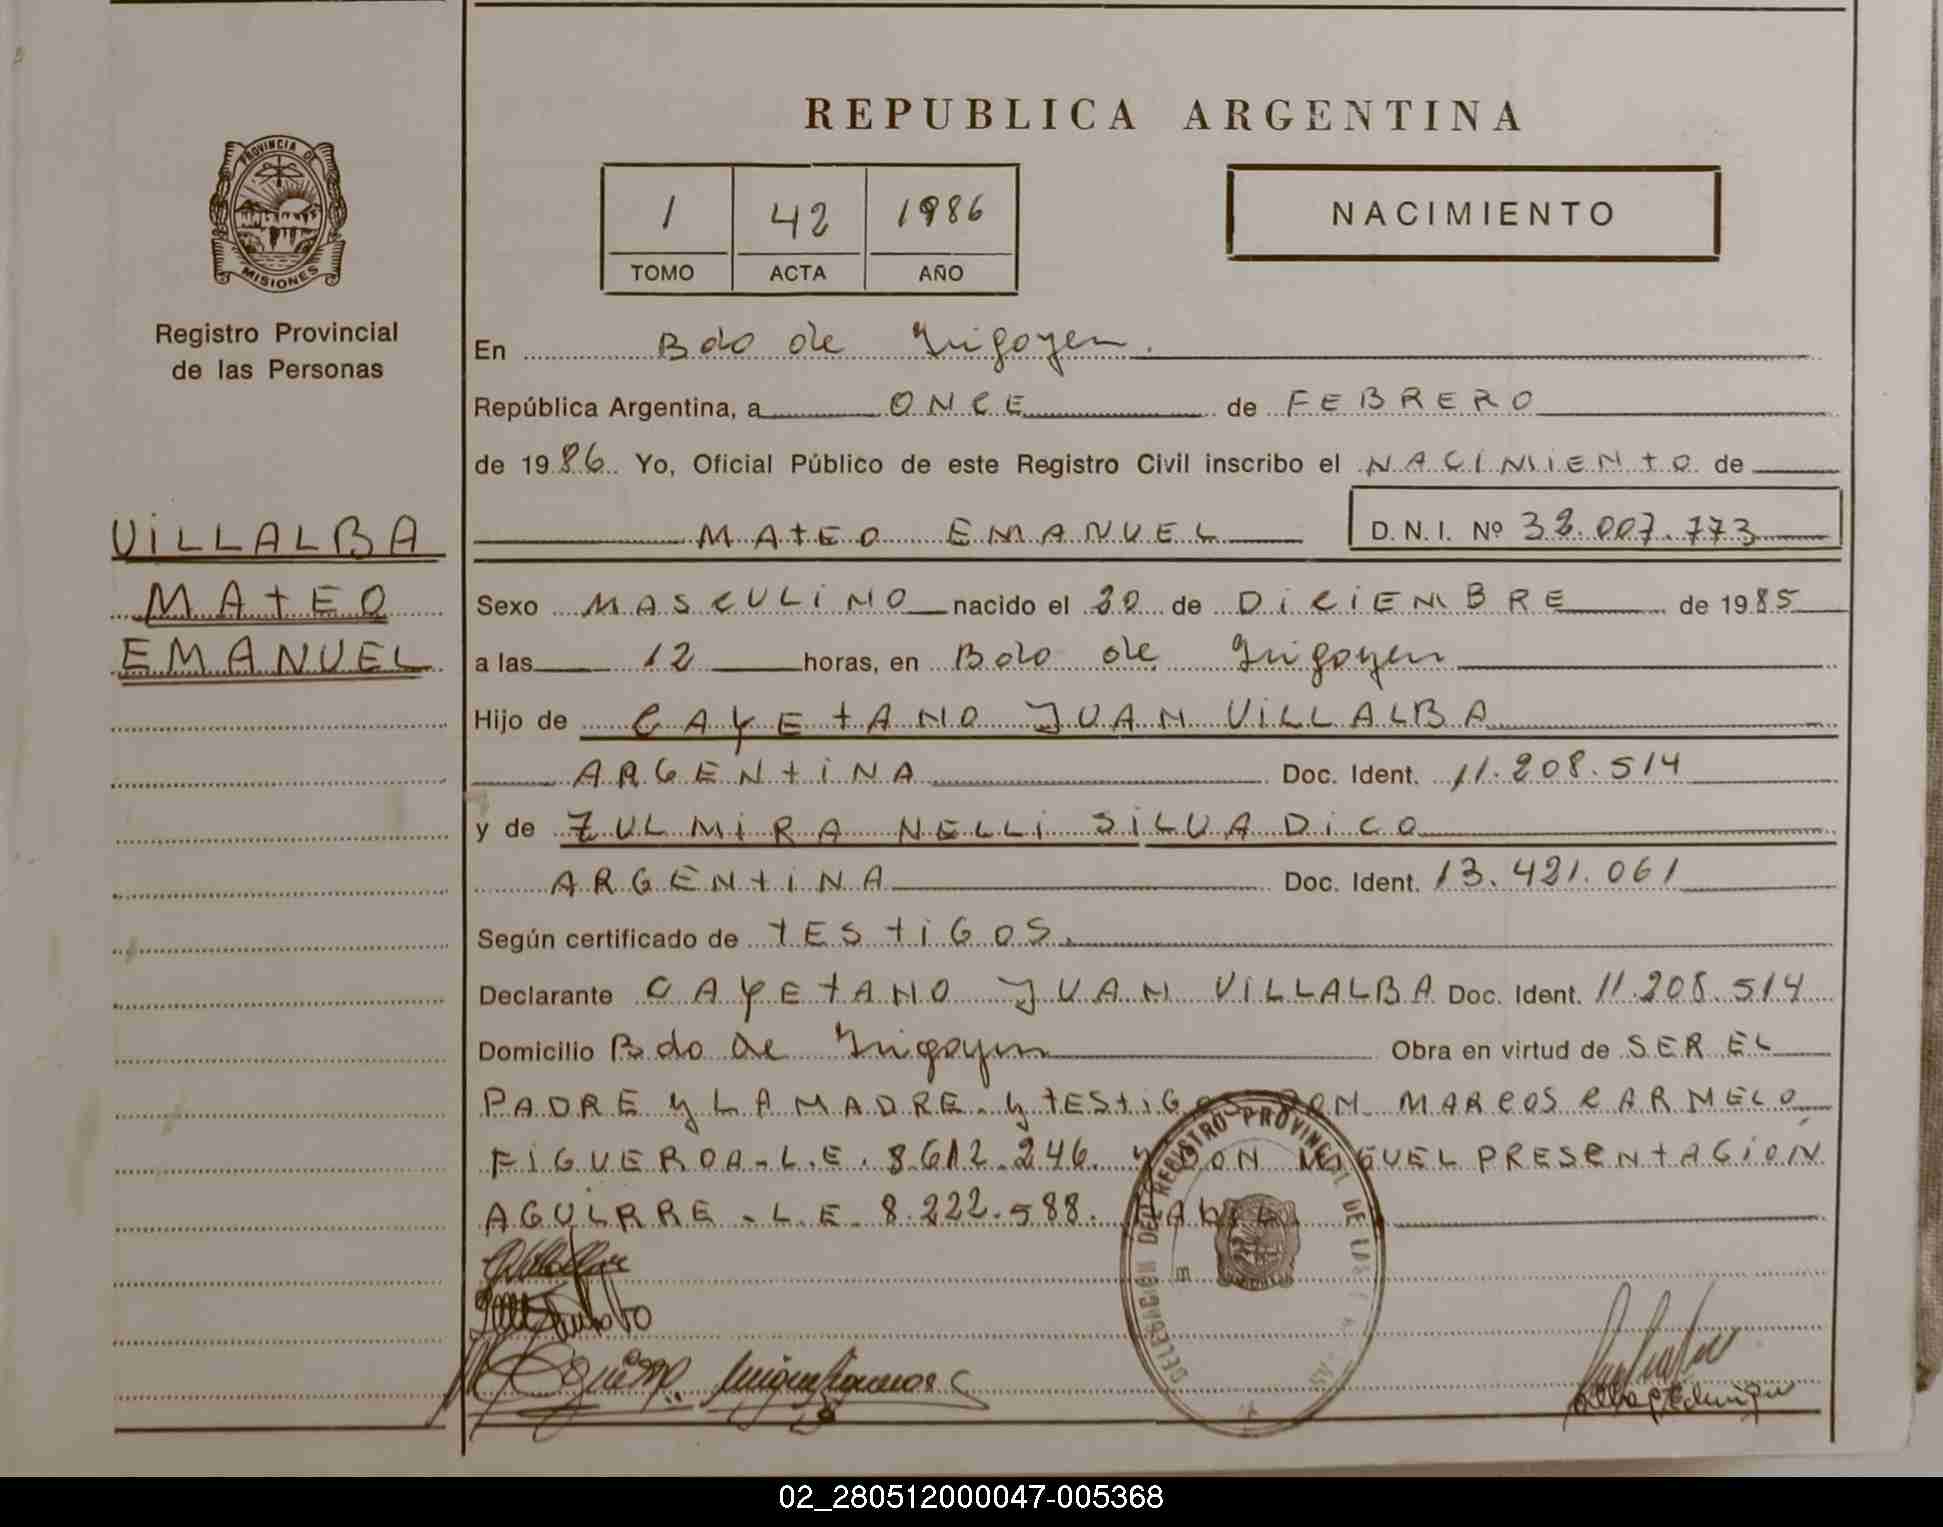 REPUBLICA ARGENTINA
PROVINCIA DE
MISIONES
Registro Provincial
de las Personas
1 42 1986
TOMO ACTA AÑO
NACIMIENTO
En Bdo de Irigoyen.
República Argentina, a ONCE de FEBRERO
de 1986. Yo, Oficial Público de este Registro Civil inscribo el NACIMIENTO de
VILLALBA
MATEO
EMANUEL
MATEO EMANUEL D.N.I. Nº 32.007.773
Sexo MASCULINO nacido el 20 de DICIEMBRE de 1985
a las 12 horas, en Bdo de Irigoyen
Hijo de CAYETANO JUAN VILLALBA
ARGENTINA Doc. Ident. 11.208.514
y de ZULMIRA NELLI SILVA DICO
ARGENTINA Doc. Ident. 13.421.061
Según certificado de TESTIGOS.
Declarante CAYETANO JUAN VILLALBA Doc. Ident. 11.208.514
Domicilio Bdo de Irigoyen Obra en virtud de SER EL
PADRE y LA MADRE. y TESTIGOS DON MARCOS CARMELO
FIGUEROA-L.E. 8.612.246. y DON MIGUEL PRESENTACIÓN
AGUIRRE-L.E. 8.222.588.
DELEGACION DEL REGISTRO PROVINCIAL DE LAS
02_280512000047-005368